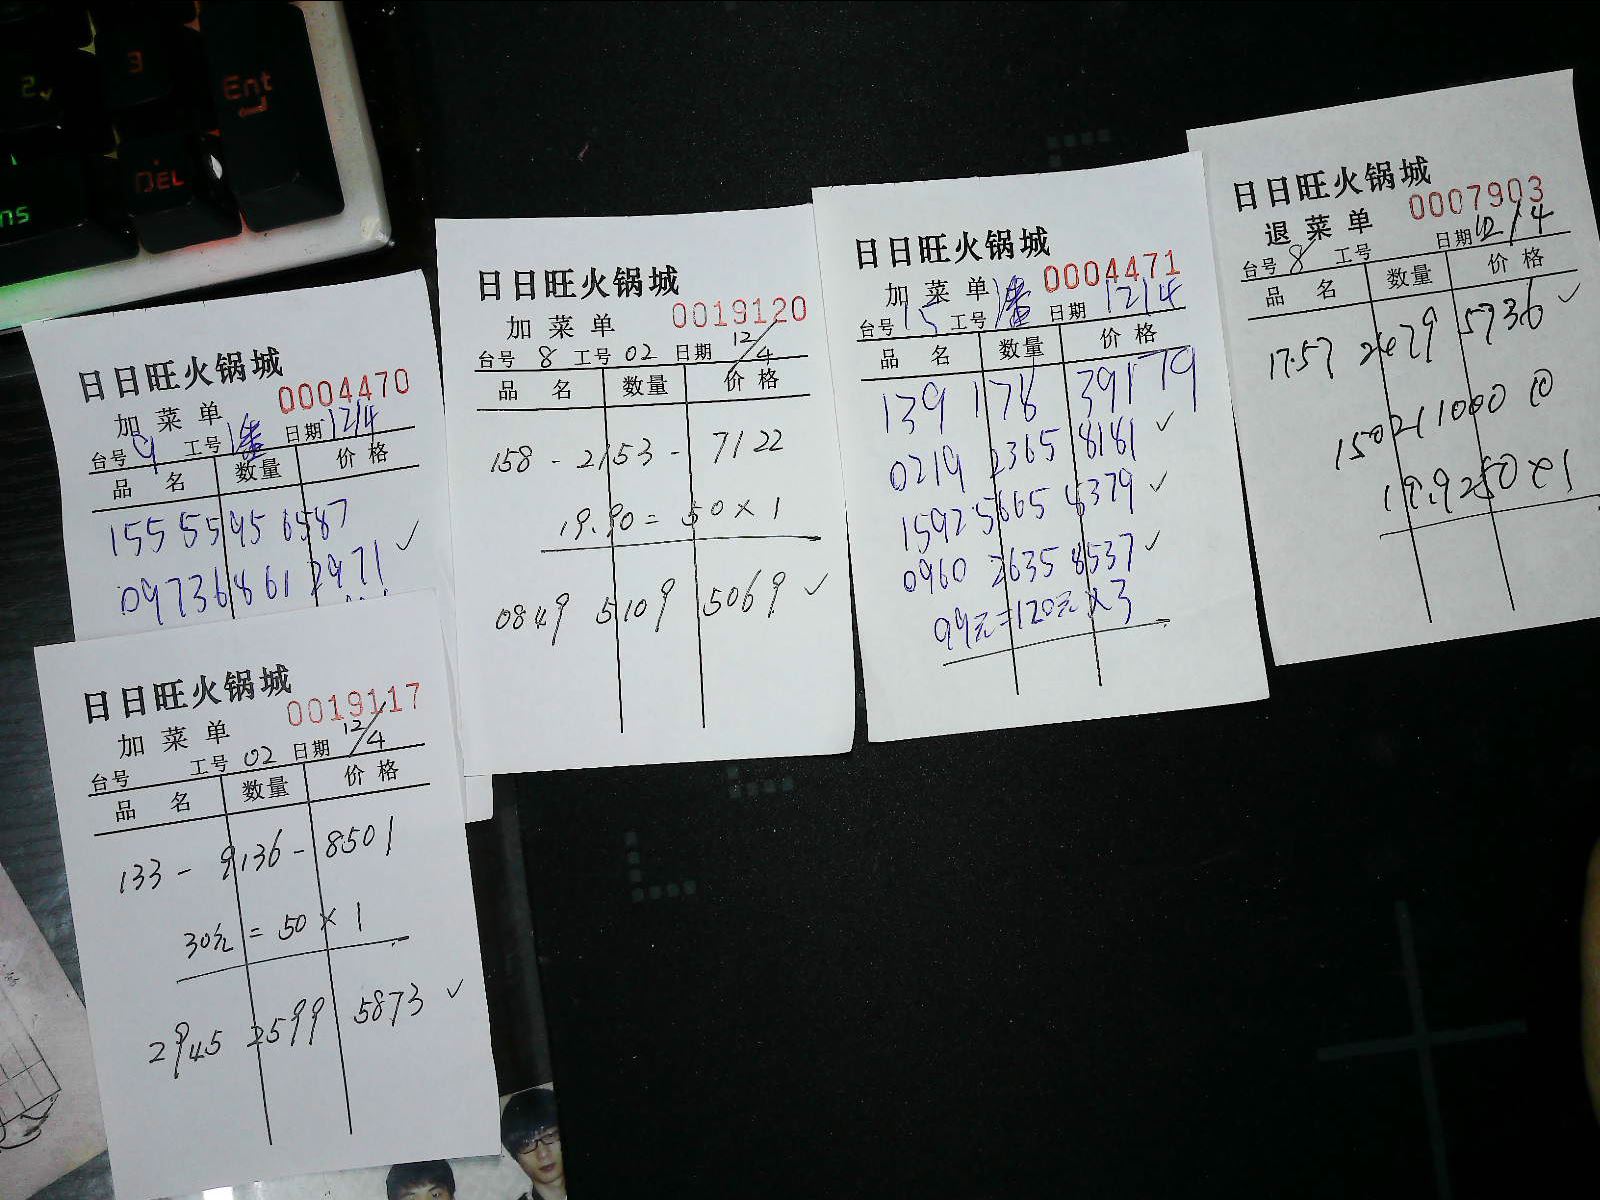 2
3
Ent
DEL
ns
日日旺火锅城
0004470
加菜单
台号 9 工号 潘 日期 12/4
品名 数量 价格
155 5595 6587
0973 6861 2971 ✓
日日旺火锅城
0019117
加菜单
台号 工号 02 日期 12/4
品名 数量 价格
133 - 9136 - 8501
30元 = 50 × 1
2945 2599 5873 ✓
日日旺火锅城
0019120
加菜单
台号 8 工号 02 日期 12/4
品名 数量 价格
158 - 2153 - 7122
19.90 = 50 × 1
0849 5109 5069 ✓
日日旺火锅城
0004471
加菜单
台号 15 工号 潘 日期 12/4
品名 数量 价格
139 178 39179
0219 2365 8181 ✓
1592 5665 8379 ✓
0960 2635 8537 ✓
99元=120元×3
日日旺火锅城
0007903
退菜单
台号 8 工号 日期 12/4
品名 数量 价格
1757 2479 5736 ✓
150 211000 10
19.9 = 50 × 1